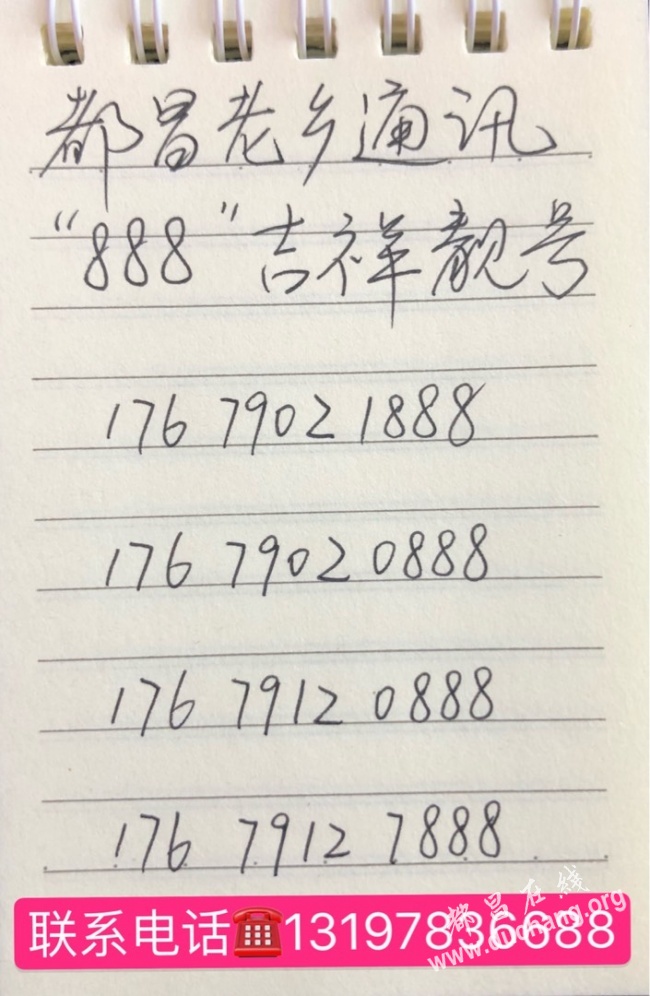 都昌老乡通讯
“888”吉祥靓号
176 7902 1888
176 7902 0888
176 7912 0888
176 7912 7888
联系电话☎️13197836688
都昌在线
www.duchang.org